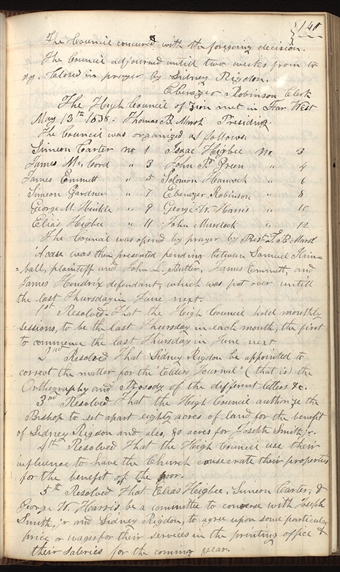 141
The Council concured with the foregoing decision.
The Council adjourned until two weeks from to
day. Closed in prayer by Sidney Rigdon.
Ebenezer Robinson Clerk
The High Council of Zion met in Far West
May 13th 1838. Thomas B. Marsh President
The Council was organized as follows.
Simeon Carter No 1 Isaac Higbee No 2
James McCord " 3 John P. Green " 4
James Emmett " 5 Solomon Hancock " 6
Simeon Gardner " 7 Ebenezer Robinson " 8
George M. Hinkle " 9 George W. Harris " 10
Elias Higbee " 11 John Murdock " 12
The Council was opened by prayer by Prest. T. B. Marsh
A case was then presented pending between Samuel
plaintiff and John L. James and
James Hendrix defendant, which was put over untill
the last Thursday in June next.
1st Resolved That the High Council hold monthly
sessions, to be the last Thursday in each month, the first
to commence the last Thursday in June next
2nd Resolved That Sidney Rigdon be appointed to
correct the matter for the Elders Journal (that is) the
Orthography and Prosody of the different letters &c.
3rd Resolved That the High Council authorize the
Bishop to set apart eighty acres of land for the benefit
of Sidney Rigdon and also, 80 acres for Joseph Smith jr.
4th Resolved That the High Council use their
influence to have the Church consecrate their properties
for the benefit of the poor.
5th Resolved That Elias Higbee, Simeon Carter, &
George W. Harris, be a committee to converse with Joseph
Smith, jr and Sidney Rigdon, to agree upon some particular
price or wages for their services in the printing office &
their saleries for the coming year.